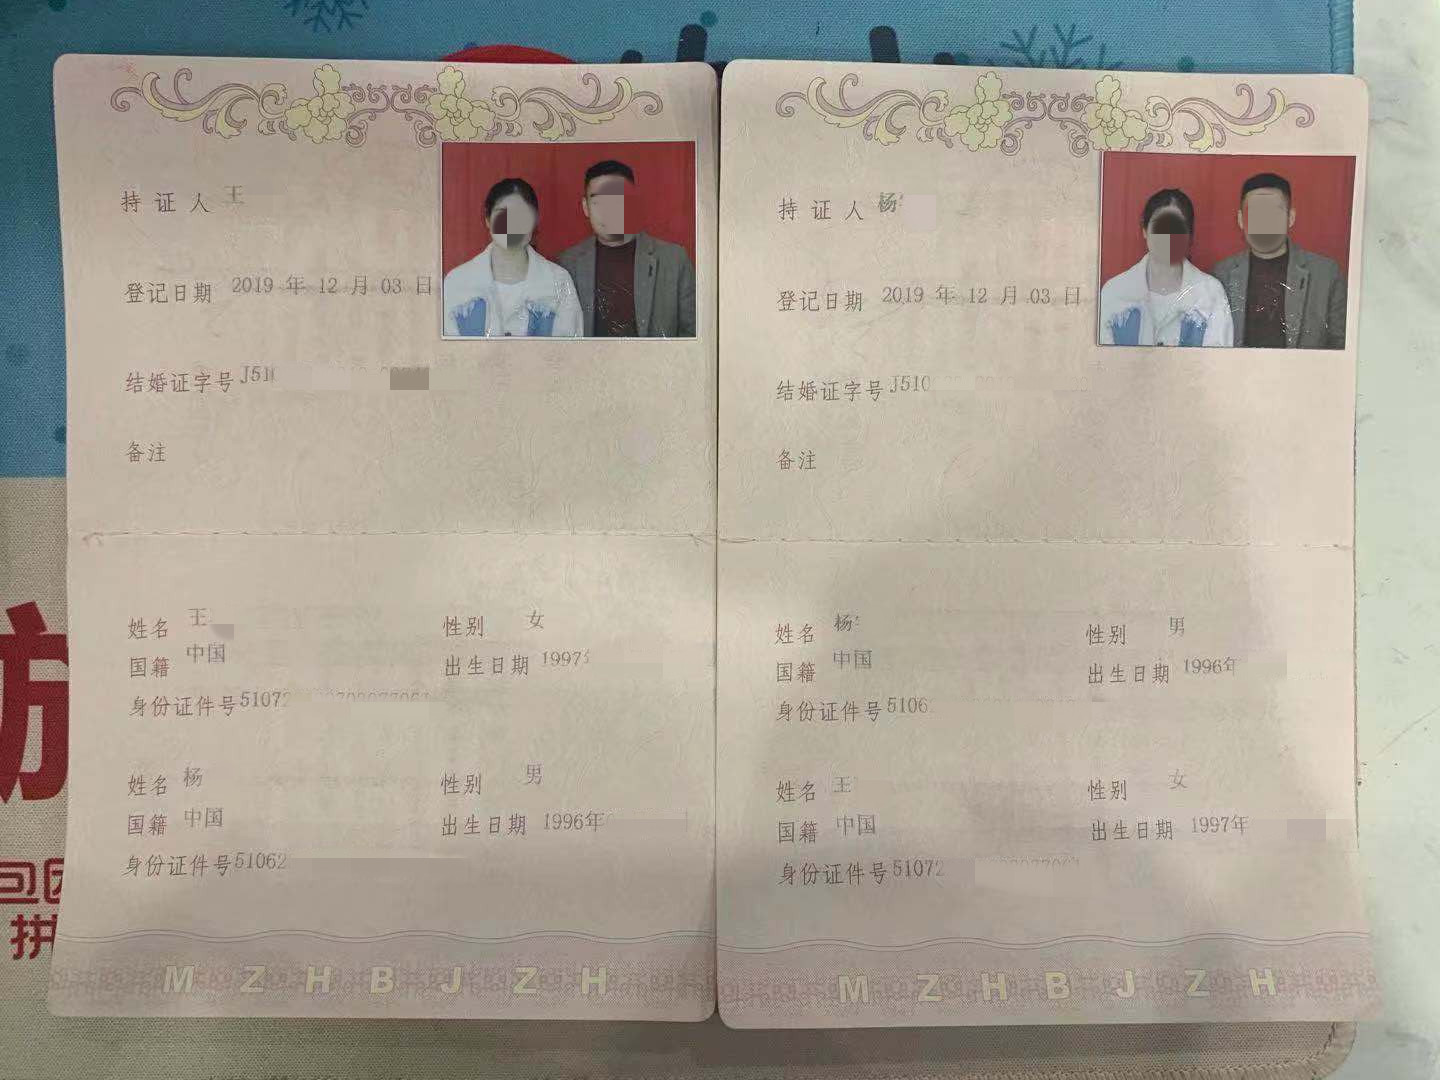 持证人 王
登记日期 2019 年 12 月 03 日
结婚证字号 J510
备注
姓名 王 性别 女
国籍 中国 出生日期 1997
身份证件号 51072
姓名 杨 性别 男
国籍 中国 出生日期 1996年
身份证件号 51062
MZHBJZH
持证人 杨
登记日期 2019 年 12 月 03 日
结婚证字号 J510
备注
姓名 杨 性别 男
国籍 中国 出生日期 1996年
身份证件号 5106
姓名 王 性别 女
国籍 中国 出生日期 1997年
身份证件号 51072
MZHBJZH
包
拼